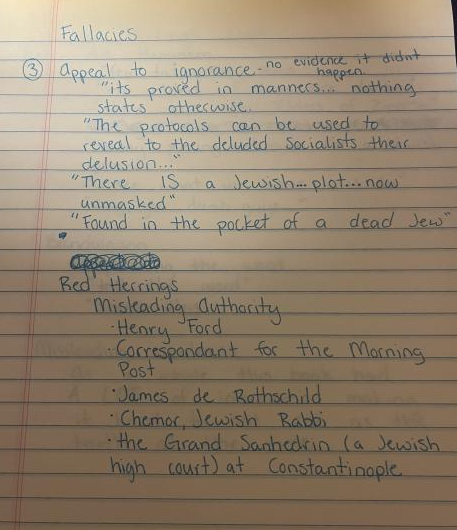 Fallacies
③ Appeal to ignorance - no evidence it didnt
happen.
"its proved in manners... nothing
states otherwise.
"The protocols can be used to
reveal to the deluded Socialists their
delusion..."
"There IS a Jewish... plot... now
unmasked"
"Found in the pocket of a dead Jew"
Red Herrings
Misleading Authority
· Henry Ford
· Correspondant for the Morning
Post
· James de Rothschild
· Chemor, Jewish Rabbi
· the Grand Sanhedrin (a Jewish
high court) at Constantinople